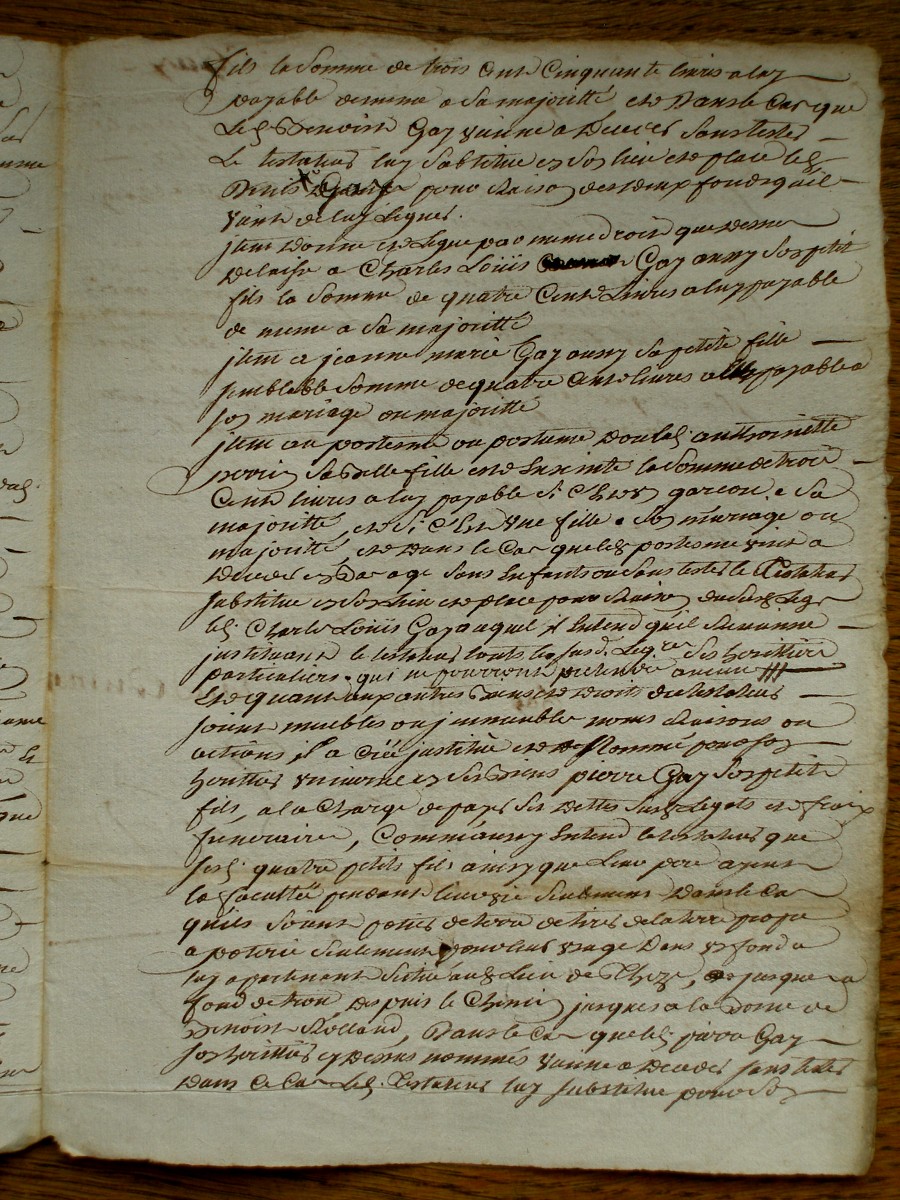 fils la Somme de trois Cent Cinquante livres a luy
payable de meme a Sa majoritté et Dans le Cas que
Led Benoist Gay vienne a Deceder Sans tester
Le testateur luy Substitue en Son lieu et place led
Denis Gay pour Raison des deux fonds qu'il
vient de luy Leguer.
jtem Donne et Legue par meme droit que Dessus
Delaisse a Charles Loüis Gay aussy Son petit
fils la Somme de quatre Cent Livres a luy payable
de meme a Sa majoritté
jtem a jeanne marie Gay aussy Sa petite fille
semblable Somme de quatre Cent livres a elle payable a
son mariage ou majoritté
jtem au posteme ou postume Dont lad anthoinette
perrin Sa Belle fille est Enceinte la Somme de trois
Cent livres a luy payable Si C'est un garcon a Sa
majoritté, et Si C'est vne fille a Son mariage ou
majoritté, et Dans le Cas que led posteme vint a
Deceder en Bas age Sans Enfants ou Sans tester le testateur
substitue en Son Lieu et place pour Raison Dud Leg
led Charles Loüis Gay auquel il Entend qu'il Revienne
justituant le testateur touts les susd. Leg.res Ses heritiers
particuliers qui ne pourront pretendre aucune
Et quant aux autres Biens et Droits du testateur
soient meubles ou jmmeubles noms Raisons ou
actions, Il a Créé justitüé et Nommé pour son
heritier vniversel en Ses Biens pierre Gay Son petit
fils, a la Charge de payer Ses Dettes Susd Legats et fraix
funeraires, Comme aussy Entend le testateur que
sesd quatre petits fils ainsy que Leur pere ayent
la faculté pendant leur vie Seulement Dans le Cas
qu'ils Soient potiers de terre de tirer de la terre propre
a poterie Seulement pour leur vsage Dans vn fond a
luy apartenant Scitue aud Lieu de , jusques a
fond de , depuis le Chemin jusques a la Borne de
Benoist Rolland, Dans le Cas que led pierre Gay
son heritier cy Dessus nommé vienne a Deceder sans tester
Dans Ce Cas Led. Testateur luy Substitue pour Son